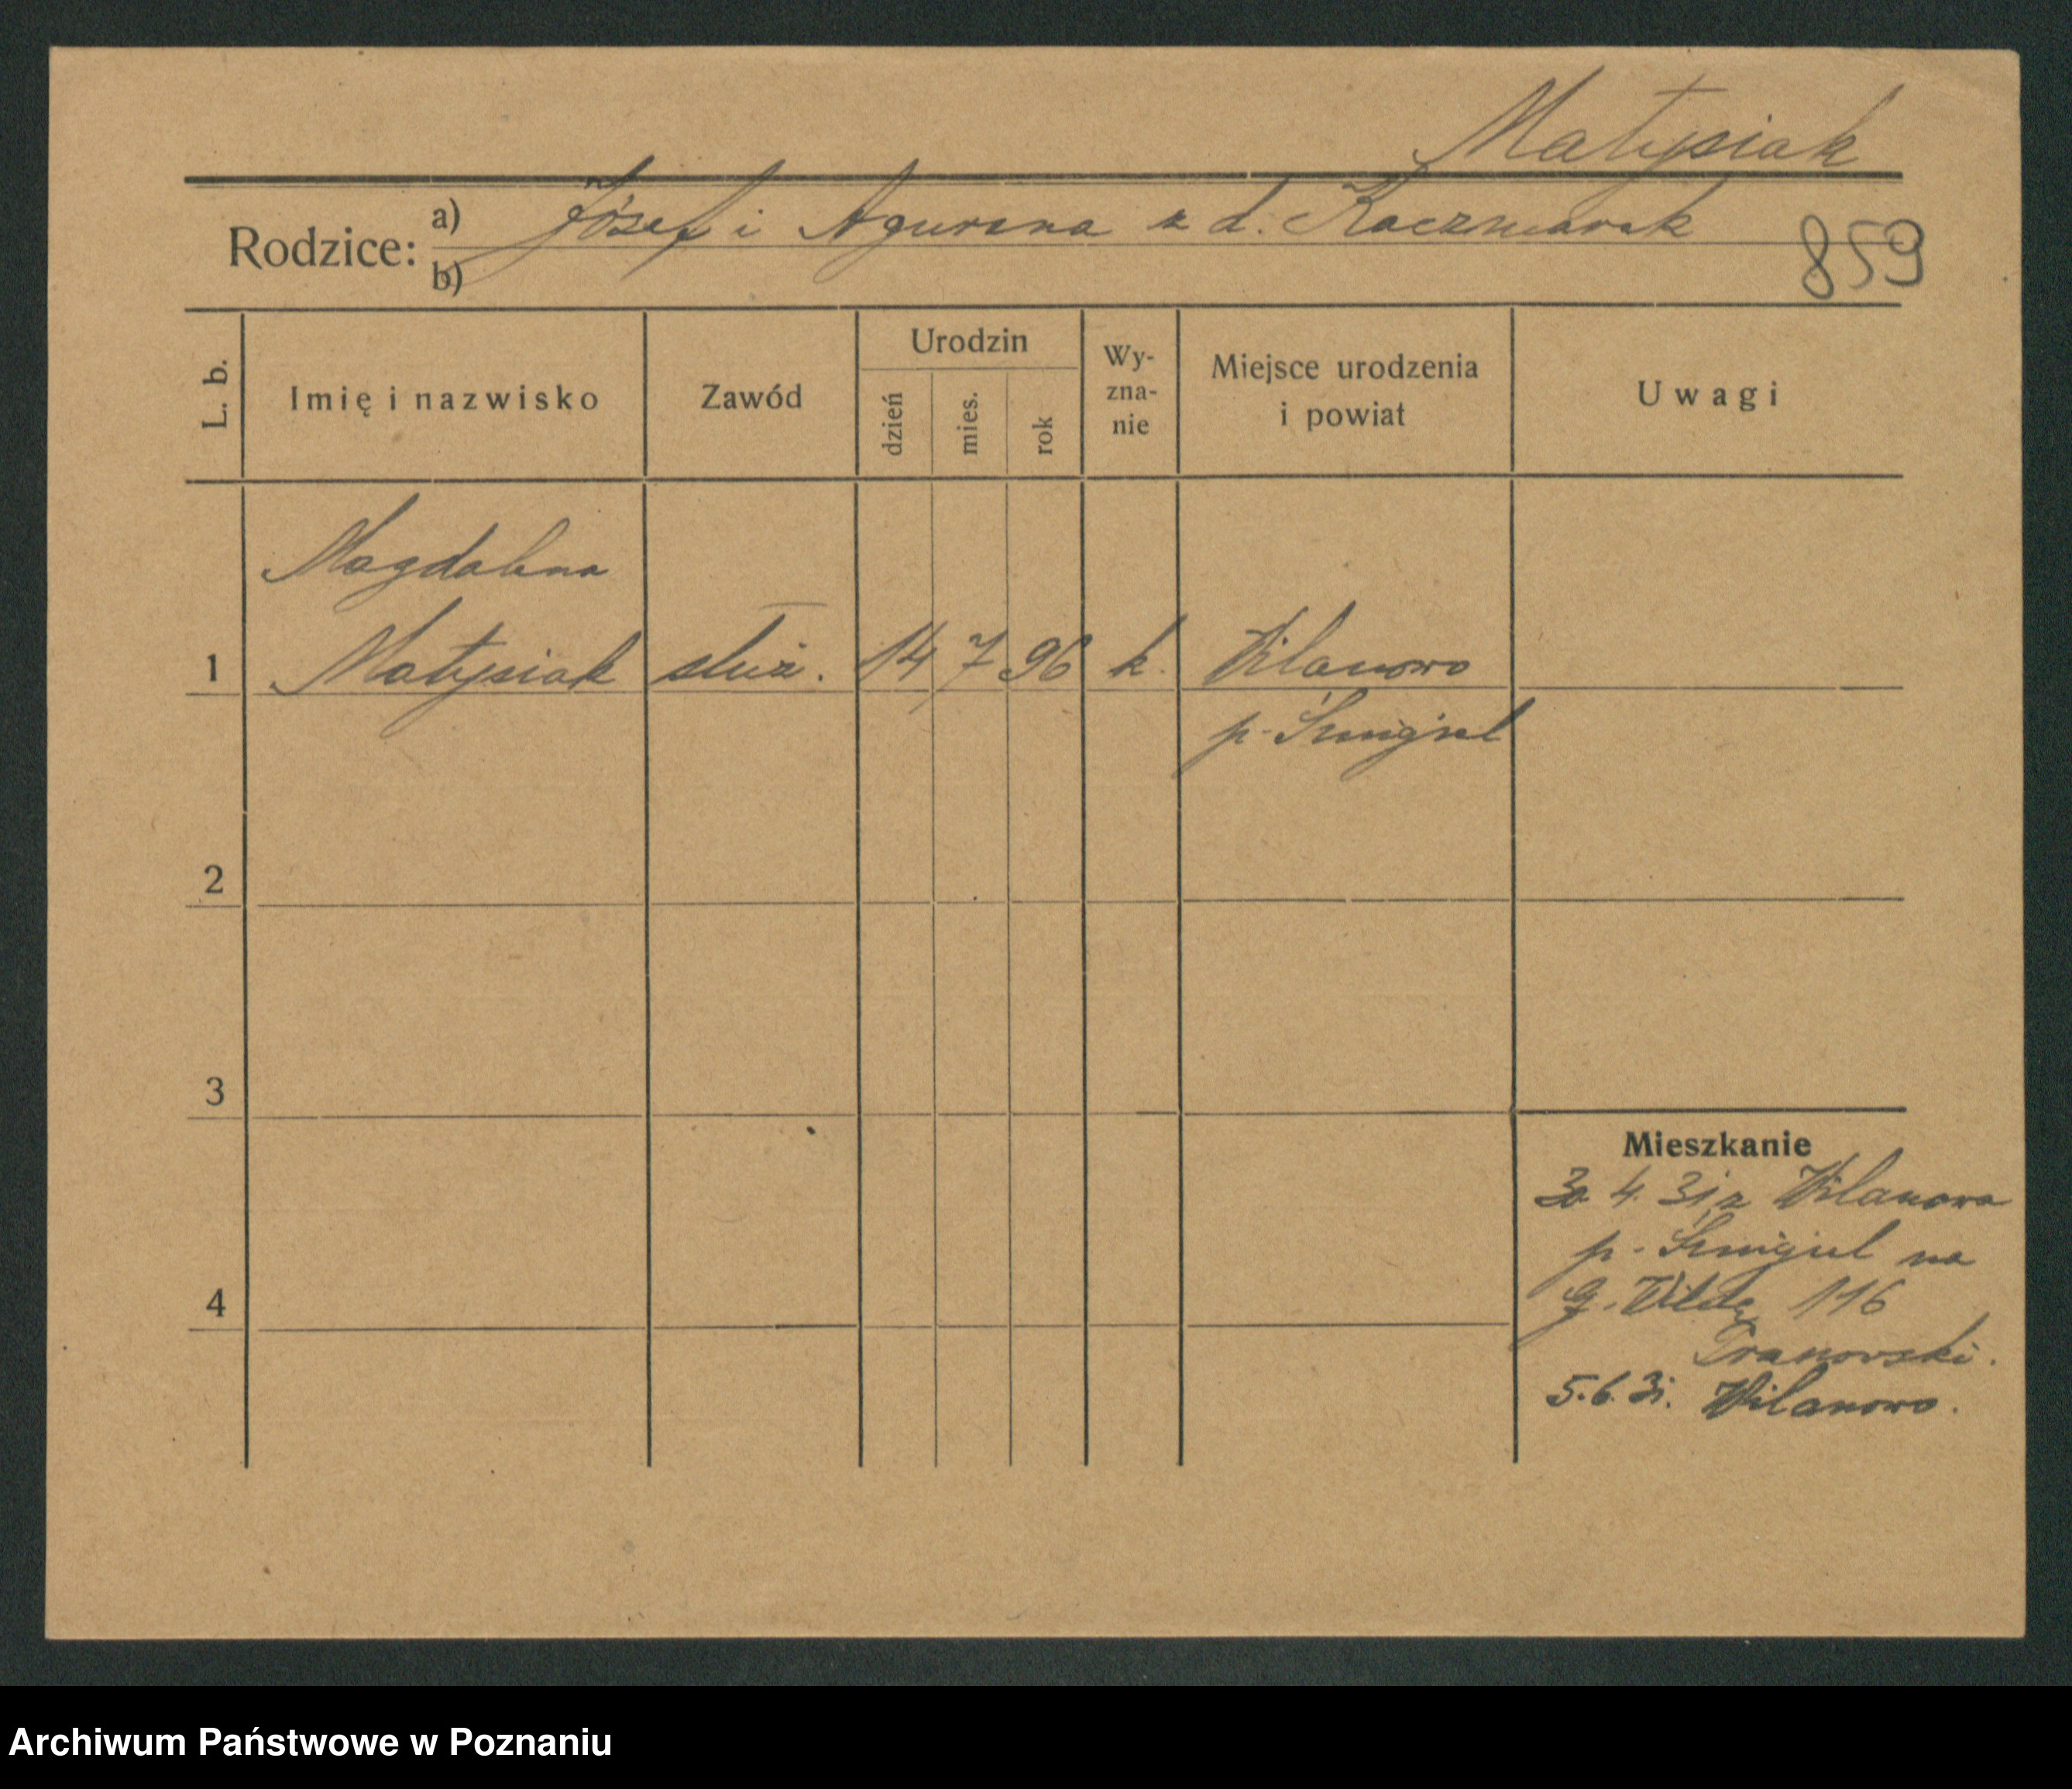 Matysiak
Rodzice: a) Józef i Agnieszka z d. Kaczmarek
b)
859
L. b.
Imię i nazwisko
Zawód
Urodzin
dzień
mies.
rok
Wy-
zna-
nie
Miejsce urodzenia
i powiat
Uwagi
Magdalena
1 Matysiak służ. 14 7 96 k. Wilanowo
p. Śmigiel
2
3
4
Mieszkanie
30. 4. 31 z Wilanowa
p. Śmigiel na
G. Wildę 116
5. 6. 31. Wilanowo.
Archiwum Państwowe w Poznaniu